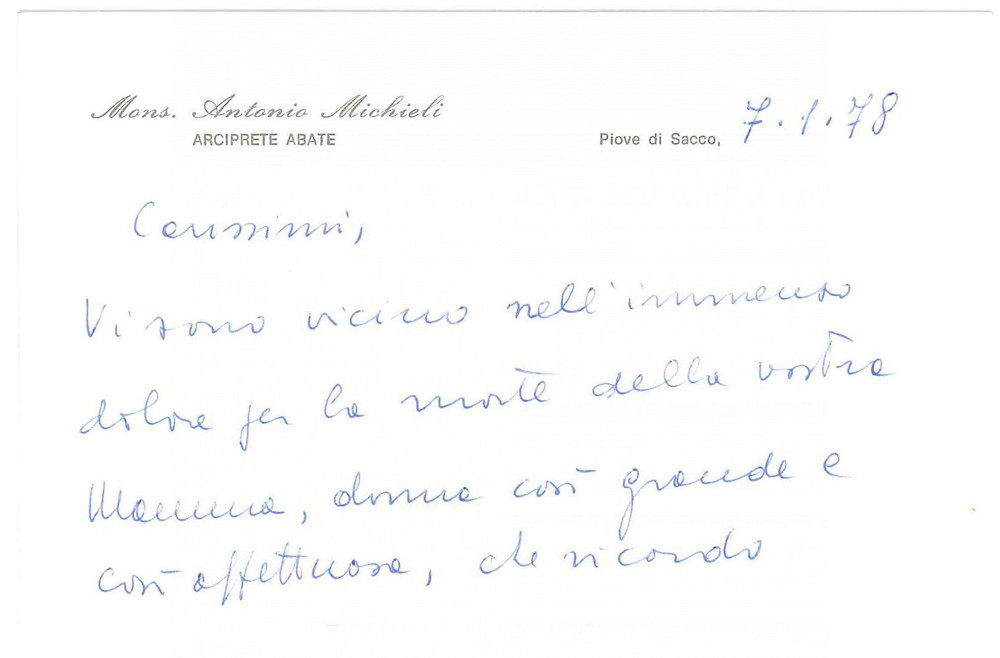 Mons. Antonio Michieli
ARCIPRETE ABATE
Piove di Sacco, 7.1.78
Carissimi,
Vi sono vicino nell'immenso
dolore per la morte della vostra
Mamma, donna così grande e
così affettuosa, che ricordo